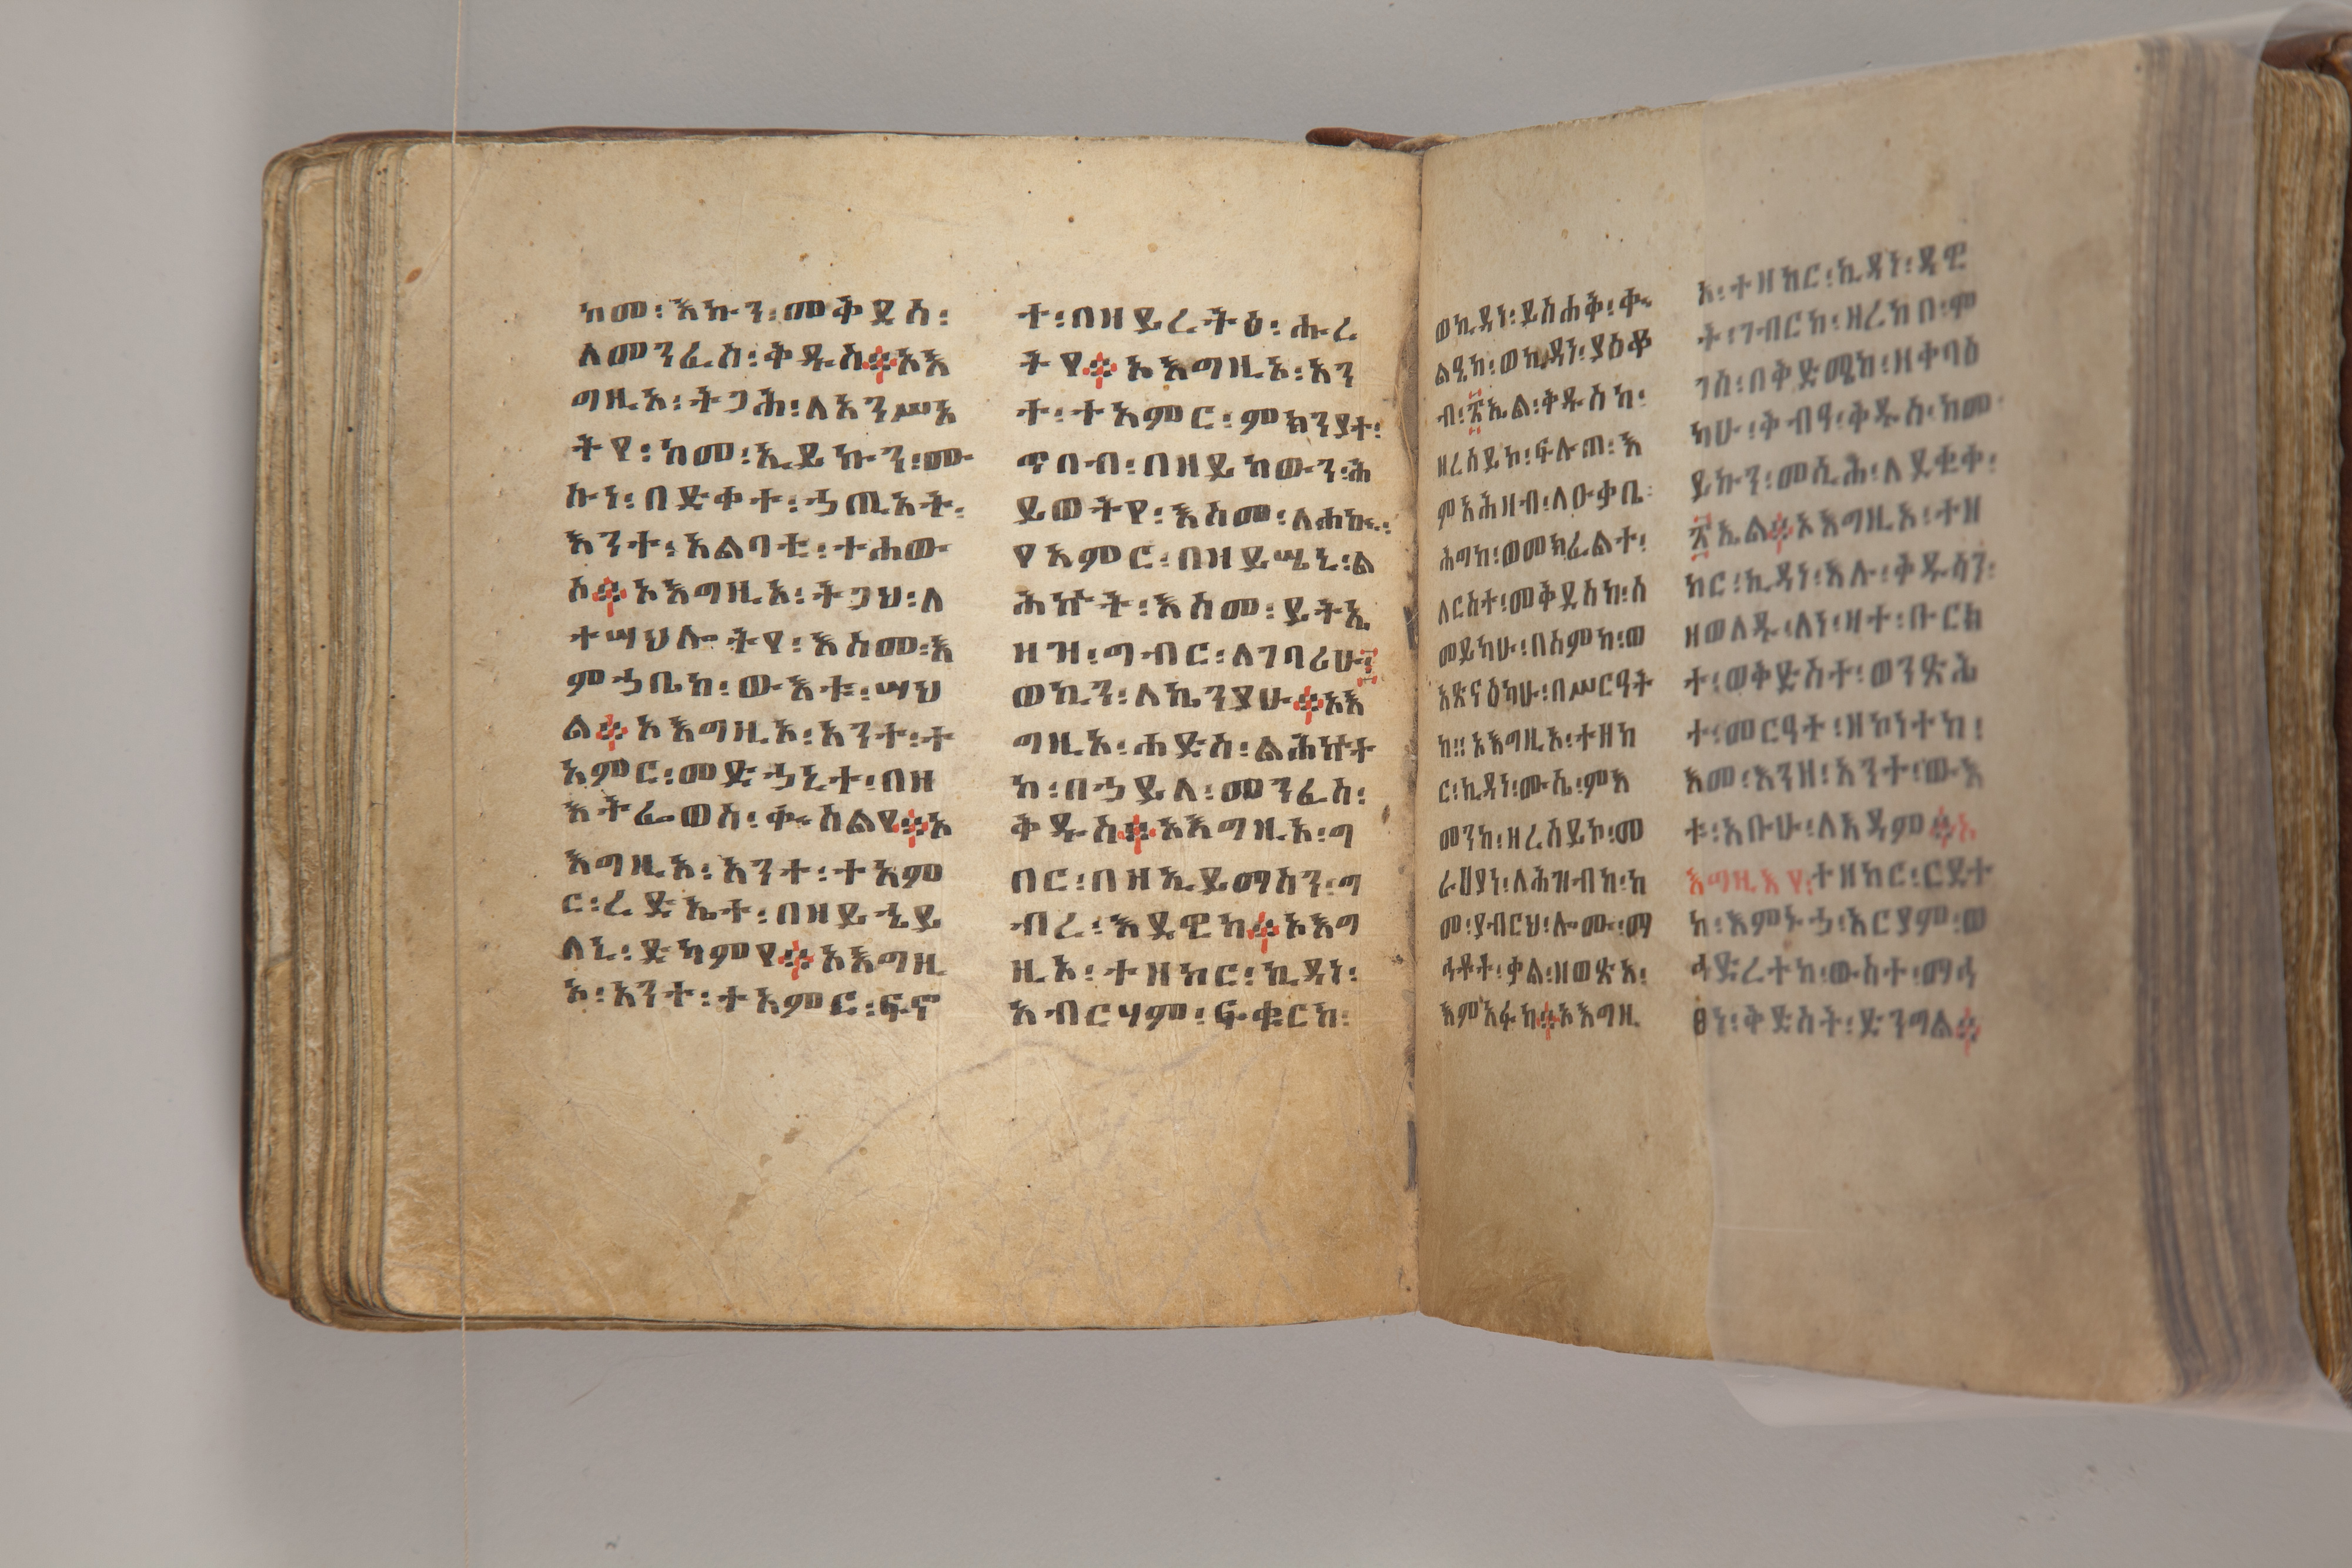 ከመ፡እኩን፡መቅደስ፡
ለመንፈስ፡ቅዱስ፨ኦእ
ግዚኦ፡ትጋሕ፡ለአንሥኦ
ትየ፡ከመ፡ኢይኩን፡ሙ
ኩነ፡በድቀተ፡ኃጢአት፡
እንተ፡አልባቲ፡ተሐው
ሶ፨ኦእግዚኦ፡ትጋህ፡ለ
ተሣህሎትየ፡እስመ፡እ
ምኃቤከ፡ውእቱ፡ሣህ
ል፨ኦእግዚኦ፡አንተ፡ተ
አምር፡መድኃኒተ፡በዘ
እትፌወስ፡ቍስልየ፨ኦ
እግዚኦ፡አንተ፡ተአም
ር፡ረድኤተ፡በዘይኄይ
ለኒ፡ድካምየ፨ኦእግዚ
ኦ፡አንተ፡ተአምር፡ፍኖ
ተ፡በዘይረትዕ፡ሑረ
ትየ፨ኦእግዚኦ፡አን
ተ፡ተአምር፡ምክንያተ፡
ጥበብ፡በዘይከውን፡ሕ
ይወትየ፡እስመ፡ለሐኵ፡
የአምር፡በዘይሤኒ፡ል
ሕኵት፡እስመ፡ይትኤ
ዘዝ፡ግብር፡ለገባሪሁ፡
ወኪን፡ለኬንያሁ፨ኦእ
ግዚኦ፡ሐድስ፡ልሕኵተ
ከ፡በኃይለ፡መንፈስ፡
ቅዱስ፨ኦእግዚኦ፡ግ
በር፡በዘኢይማስን፡ግ
ብረ፡እደዊከ፨ኦእግ
ዚኦ፡ተዘከር፡ኪዳነ፡
አብርሃም፡ፍቁርከ፡
ወኪዳነ፡ይስሐቅ፡ቍ
ልዔከ፡ወኪዳነ፡ያዕቆ
ብ፡፳ኤል፡ቅዱስከ፡
ዘረሰይከ፡ፍሉጠ፡እ
ምአሕዛብ፡ለዑቃቤ፡
ሕግከ፡ወመክፈልተ፡
ለርስተ፡መቅደስከ፡ሰ
መይካሁ፡በስምከ፡ወ
አጽናዕካሁ፡በሥርዓት
ከ።ኦእግዚኦ፡ተዘከ
ር፡ኪዳነ፡ሙሴ፡ምእ
መንከ፡ዘረሰይኮ፡መ
ራሀያነ፡ለሕዝብከ፡ከ
መ፡ያብርህ፡ሎሙ፡ማ
ኅቶተ፡ቃል፡ዘወፅአ፡
እምአፉከ፨ኦእግዚ
ኦ፡ተዘከር፡ኪዳነ፡ዳዊ
ት፡ገብርከ፡ዘረከበ፡ሞ
ገሰ፡በቅድሜከ፡ዘቀባዕ
ካሁ፡ቅብዓ፡ቅዱስ፡ከመ
ይኩን፡መሲሕ፡ለደቂቀ፡
፳ኤል፨ኦእግዚኦ፡ተዘ
ከር፡ኪዳነ፡እሉ፡ቅዱሳን፡
ዘወለዱ፡ለነ፡ዛተ፡ቡርክ
ተ፡ወቅድስተ፡ወንጽሕ
ተ፡መርዓተ፡ዘኮነተከ፡
እመ፡እንዘ፡አንተ፡ውእ
ቱ፡አቡሁ፡ለአዳም፨ኦ
እግዚእየ፡ተዘከር፡ርደተ
ከ፡እምኑኃ፡አርያም፡ወ
ኃድረተከ፡ውስተ፡ማኅ
ፀነ፡ቅድስት፡ድንግል፨